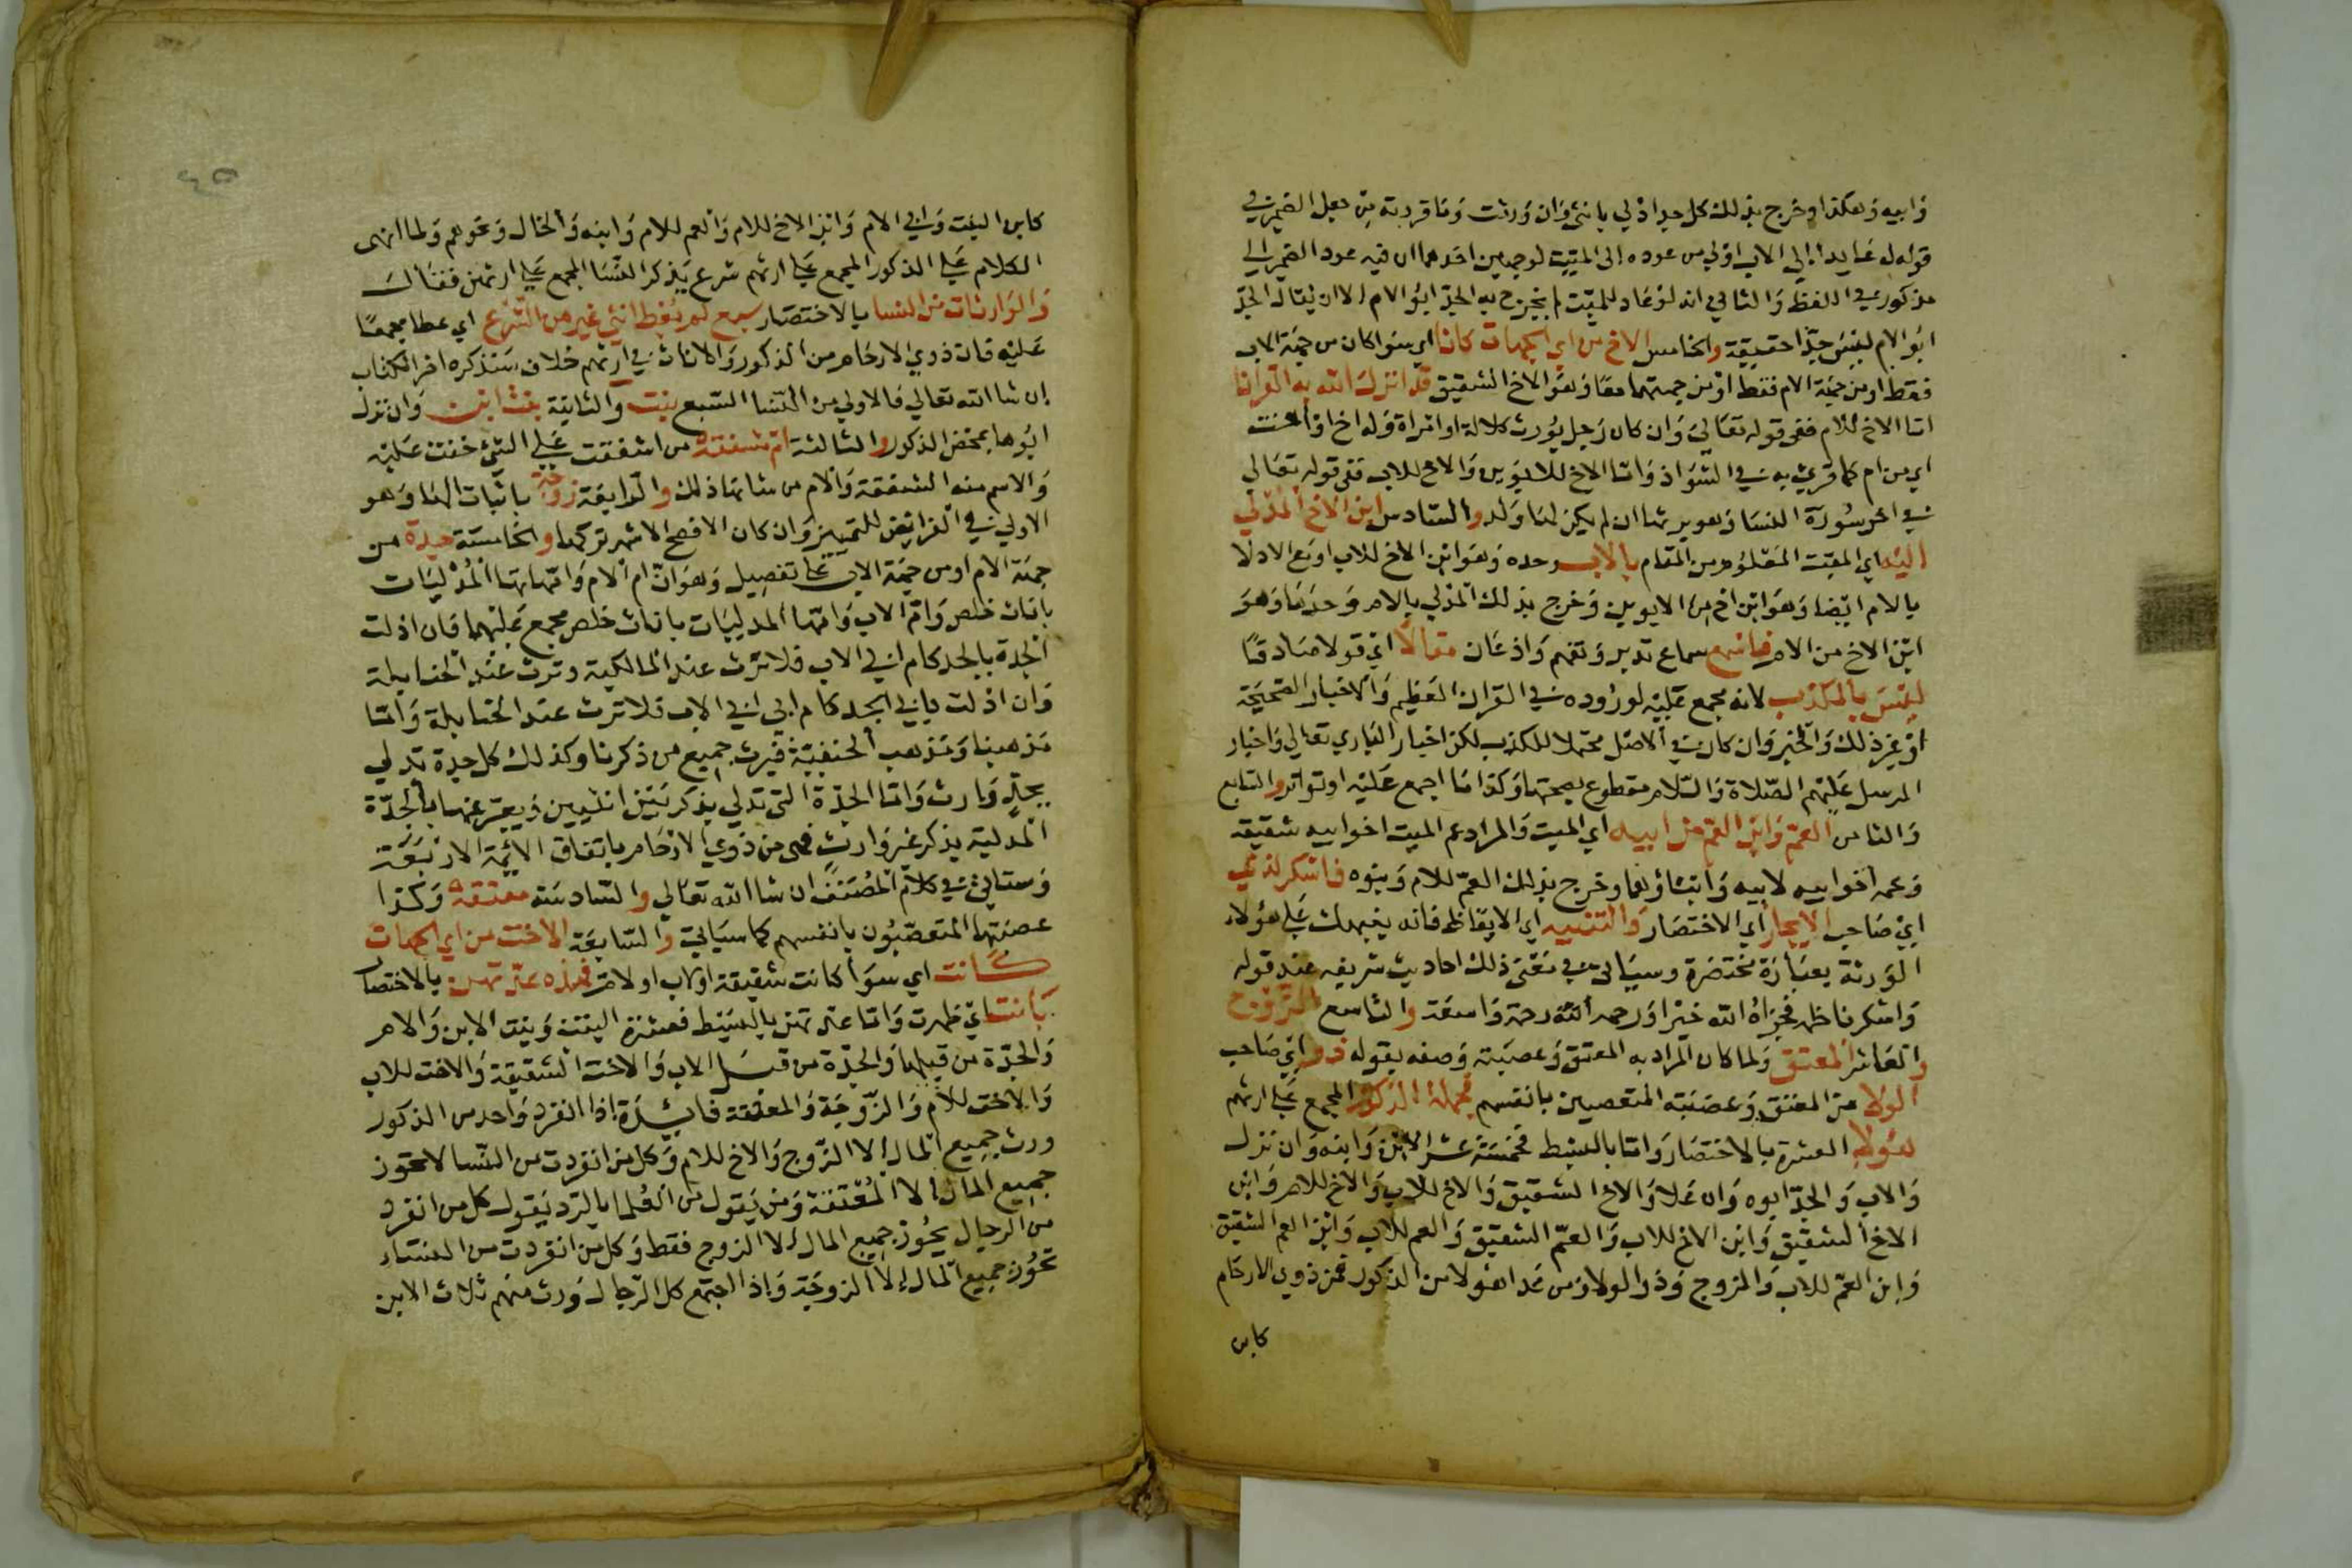 وابيه وهكذا وخرج بذلك كل جد ادلي بانثي وان ورثت وما قررته من جعل الضمير في
قوله له عايدا الي الاب اولي من عوده الى الميت لوجهين احدهما ان فيه عود الضمير الي
مذكور في اللفظ والثاني انه لو عاد للميت لم يخرج به الجد ابو الام الا ان يقال الجد
ابو الام ليس جدا حقيقة والخامس الاخ من اي الجهات كانا اي سوا كان من جهة الاب
فقط او من جهة الام فقط او من جهتهما معا وهو الاخ الشقيق قد انزل الله به القرانا
اما الاخ للام ففي قوله تعالي وان كان رجل يورث كلالة او امراة وله اخ او اخت
اي من ام كما قري به في الشواذ واما الاخ للابوين والاخ للاب ففي قوله تعالى
في اخر سورة النسا وهو يرثها ان لم يكن لها ولد والسادس ابن الاخ المدلي
اليه اي الميت المعلوم من المقام بالاب وحده وهو ابن الاخ للاب او مع الادلا
بالام ايضا وهو ابن اخ من الابوين وخرج بذلك المدلي بالام وحدها وهو
ابن الاخ من الام فاسمع سماع تدبر وتفهم واذعان مقالا اي قولا صادقا
ليس بالمكذب لانه مجمع عليه لوروده في القران العظيم والاخبار الصحيحة
او غير ذلك والخبر وان كان في الاصل محتملا للكذب لكن اخبار الباري تعالي واخبار
المرسل عليهم الصلاة والسلام مقطوع بصحتها وكذا ما اجمع عليه او تواتر والسابع
والثامن العم وابن العم من ابيه اي الميت والمراد عم الميت اخو ابيه شقيقه
وعمه اخو ابيه لابيه وابناؤهما وخرج بذلك العم للام وبنوه فاشكر لذي
اي صاحب الايجاز اي الاختصار والتنبيه اي الايقاظ فانه ينبهك علي هؤلاء
الورثة بعبارة مختصرة وسياتي في معني ذلك احاديث شريفه عند قوله
واشكر ناظمه فجزاه الله خيرا ورحمه الله رحمة واسعة والتاسع الزوج
والعاشر المعتق ولما كان المراد به المعتق وعصبته وصفه بقوله ذو اي صاحب
الولا من المعتق وعصبته المتعصبين بانفسهم فجملة الذكور المجمع علي ارثهم
هؤلا العشرة بالاختصار واما بالبسط فخمسة عشر الابن وابنه وان نزل
والاب والجد ابوه وان علا والاخ الشقيق والاخ للاب والاخ للام وابن
الاخ الشقيق وابن الاخ للاب والعم الشقيق والعم للاب وابن العم الشقيق
وابن العم للاب والزوج وذو الولا ومن عدا هؤلا من الذكور فمن ذوي الارحام
كابن
٤٥
كابن البنت وابي الام وابن الاخ للام والعم للام وابنه والخال ونحوهم ولما انهى
الكلام علي الذكور المجمع علي ارثهم شرع يذكر النسا المجمع علي ارثهن فقال
والوارثات من النسا بالاختصار سبع لم يعط انثي غيرهن الشرع اي عطا مجمعا
عليه فان ذوي الارحام من الذكور والاناث في ارثهم خلاف سنذكره اخر الكتاب
ان شا الله تعالي فالاولي من النسا السبع بنت والثانية بنت ابن وان نزل
ابوها بمحض الذكور والثالثة ام مشفقة من اشفقت علي الشي خفت عليه
والاسم منه الشفقة والام من شانها ذلك والرابعة زوجة باثبات الها وهو
الاولي في الفرايض للتمييز وان كان الافصح الاشهر تركها والخامسة جدة من
جهة الام او من جهة الاب علي تفصيل وهو ان ام الام وامهاتها المدليات
باناث خلص وام الاب وامهاتها المدليات باناث خلص مجمع عليهما فان ادلت
الجدة بالجد كام ابي الاب فلا ترث عند المالكية وترث عند الحنابلة
وان ادلت بابي الجد كام ابي ابي الاب فلا ترث عند الحنابلة واما
مذهبنا ومذهب الحنفية فيرث جميع من ذكرنا وكذلك كل جدة تدلي
بجد وارث واما الجدة التي تدلي بذكر بين انثيين ويعبر عنها بالجدة
المدلية بذكر غير وارث فهي من ذوي الارحام باتفاق الايمة الاربعة
وستاتي في كلام المصنف ان شا الله تعالي والسادسة معتقة وكذا
عصبتها المتعصبون بانفسهم كما سياتي والسابعة الاخت من اي الجهات
كانت اي سوا كانت شقيقة او لاب او لام فهذه عدتهن بالاختصار
بانت اي ظهرت واما عدتهن بالبسط فعشرة البنت وبنت الابن والام
والجدة من قبلها والجدة من قبل الاب والاخت الشقيقة والاخت للاب
والاخت للام والزوجة والمعتقة فايدة اذا انفرد واحد من الذكور
ورث جميع المال الا الزوج والاخ للام وكل من انفردت من النسا لا تحوز
جميع المال الا المعتقة ومن يقول من العلما بالرد يقول كل من انفرد
من الرجال يحوز جميع المال الا الزوج فقط وكل من انفردت من النساء
تحوز جميع المال الا الزوجة واذا اجتمع كل الرجال ورث منهم ثلاث الابن